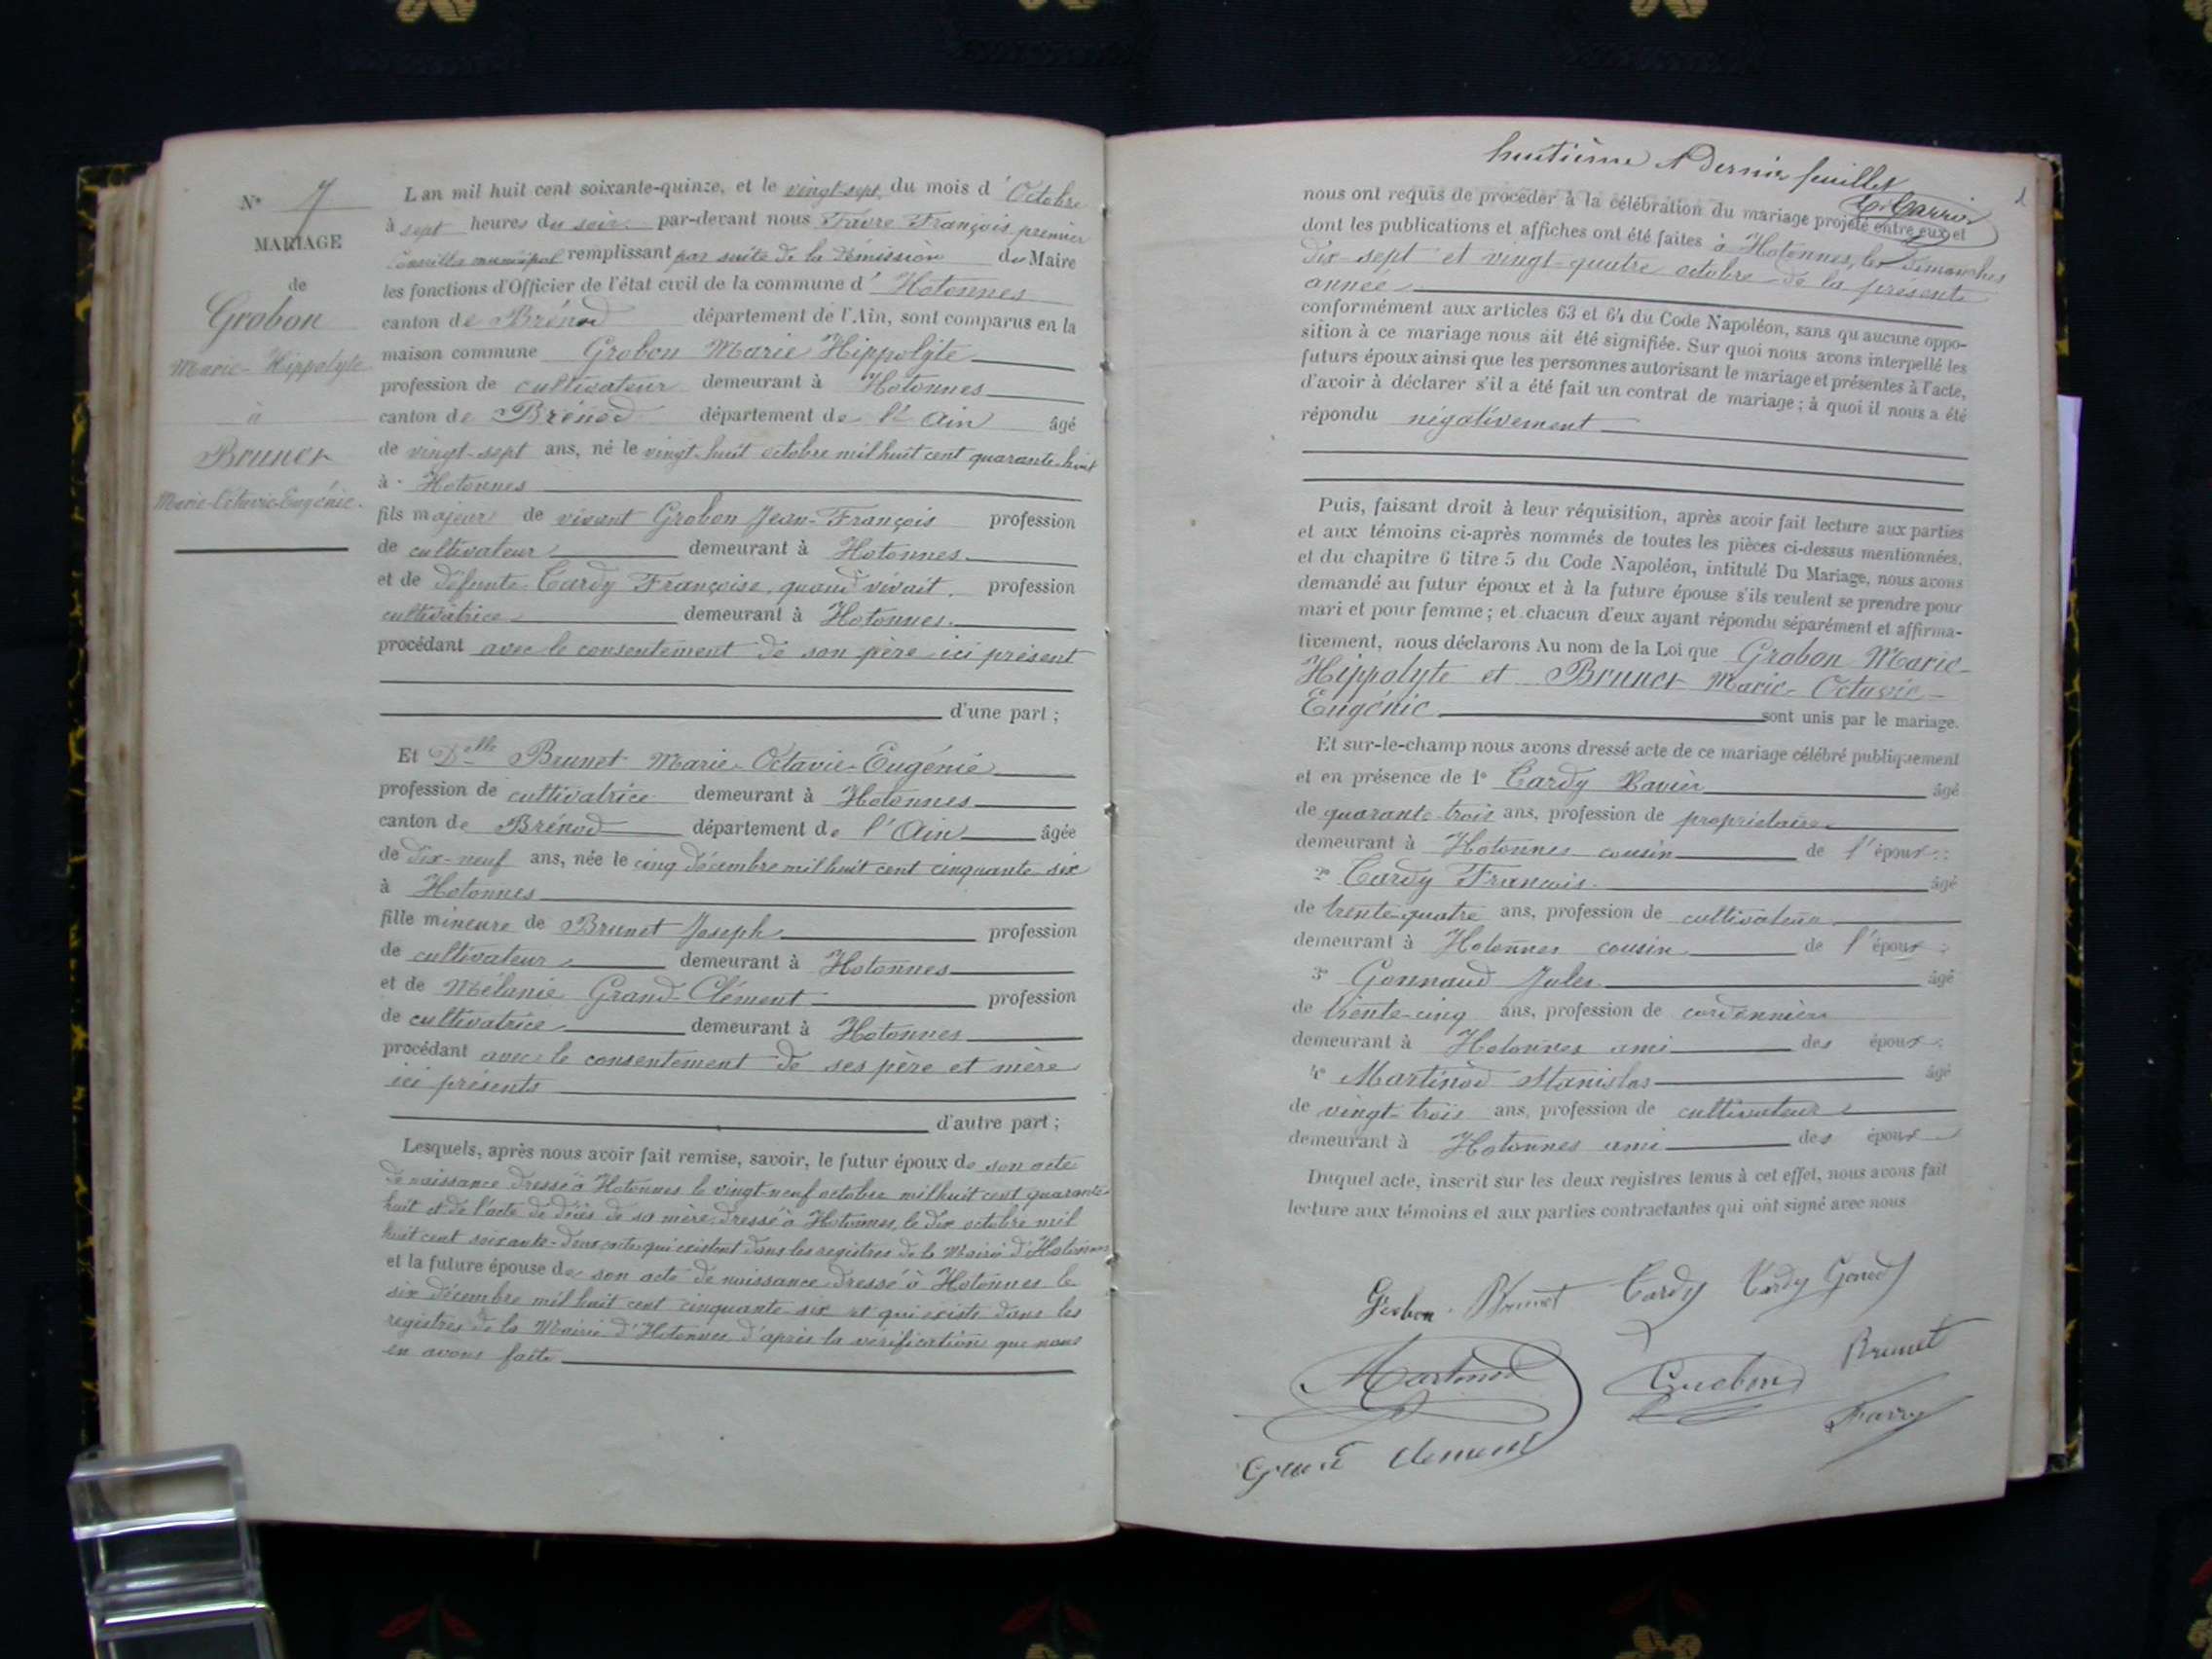 N° 7
MARIAGE
de
Grobon
Marie-Hippolyte
à
Brunet
Marie-Octavie-Eugénie.
L'an mil huit cent soixante-quinze, et le vingt-sept du mois d'Octobre
à sept heures du soir par-devant nous Favre François premier
Conseiller municipal remplissant par suite de la démission du Maire
les fonctions d'Officier de l'état civil de la commune d'Hotonnes
canton de Brénod département de l'Ain, sont comparus en la
maison commune Grobon Marie Hippolyte
profession de cultivateur demeurant à Hotonnes
canton de Brénod département de l'Ain âgé
de vingt-sept ans, né le vingt-huit octobre mil huit cent quarante-huit
à Hotonnes
fils majeur de vivant Grobon Jean-François profession
de cultivateur demeurant à Hotonnes
et de défunte Cardy Françoise, quand vivait, profession
cultivatrice demeurant à Hotonnes
procédant avec le consentement de son père ici présent
d'une part ;
Et Delle Brunet Marie-Octavie-Eugénie
profession de cultivatrice demeurant à Hotonnes
canton de Brénod département de l'Ain âgée
de dix-neuf ans, née le cinq décembre mil huit cent cinquante-six
à Hotonnes
fille mineure de Brunet Joseph profession
de cultivateur demeurant à Hotonnes
et de Mélanie Grand-Clément profession
de cultivatrice demeurant à Hotonnes
procédant avec le consentement de ses père et mère
ici présents
d'autre part ;
Lesquels, après nous avoir fait remise, savoir, le futur époux de son acte
de naissance dressé à Hotonnes le vingt-neuf octobre mil huit cent quarante-
huit et de l'acte de décès de sa mère dressé à Hotonnes, le dix octobre mil
huit cent soixante-deux, actes qui existent dans les registres de la Mairie d'Hotonnes
et la future épouse de son acte de naissance dressé à Hotonnes le
six décembre mil huit cent cinquante-six et qui existe dans les
registres de la Mairie d'Hotonnes d'après la vérification que nous
en avons faite
huitième & dernier feuillet
nous ont requis de procéder à la célébration du mariage projeté entre eux et
dont les publications et affiches ont été faites à Hotonnes, les dimanches
dix-sept et vingt-quatre octobre de la présente
année
conformément aux articles 63 et 64 du Code Napoléon, sans qu'aucune oppo-
sition à ce mariage nous ait été signifiée. Sur quoi nous avons interpellé les
futurs époux ainsi que les personnes autorisant le mariage et présentes à l'acte,
d'avoir à déclarer s'il a été fait un contrat de mariage ; à quoi il nous a été
répondu négativement
Puis, faisant droit à leur réquisition, après avoir fait lecture aux parties
et aux témoins ci-après nommés de toutes les pièces ci-dessus mentionnées,
et du chapitre 6 titre 5 du Code Napoléon, intitulé Du Mariage, nous avons
demandé au futur époux et à la future épouse s'ils veulent se prendre pour
mari et pour femme ; et chacun d'eux ayant répondu séparément et affirma-
tivement, nous déclarons Au nom de la Loi que Grobon Marie-
Hippolyte et Brunet Marie-Octavie-
Eugénie sont unis par le mariage.
Et sur-le-champ nous avons dressé acte de ce mariage célébré publiquement
et en présence de 1° Cardy Xavier âgé
de quarante-trois ans, profession de propriétaire
demeurant à Hotonnes cousin de l'époux
2° Cardy François âgé
de trente-quatre ans, profession de cultivateur
demeurant à Hotonnes cousin de l'époux
3° Gonnaud Jules âgé
de trente-cinq ans, profession de cordonnier
demeurant à Hotonnes ami des époux
4° Martinod Stanislas âgé
de vingt-trois ans, profession de cultivateur
demeurant à Hotonnes ami des époux
Duquel acte, inscrit sur les deux registres tenus à cet effet, nous avons fait
lecture aux témoins et aux parties contractantes qui ont signé avec nous
Grobon Brunet Cardy Cardy
Martinod Grobon Brunet
Grand Clement